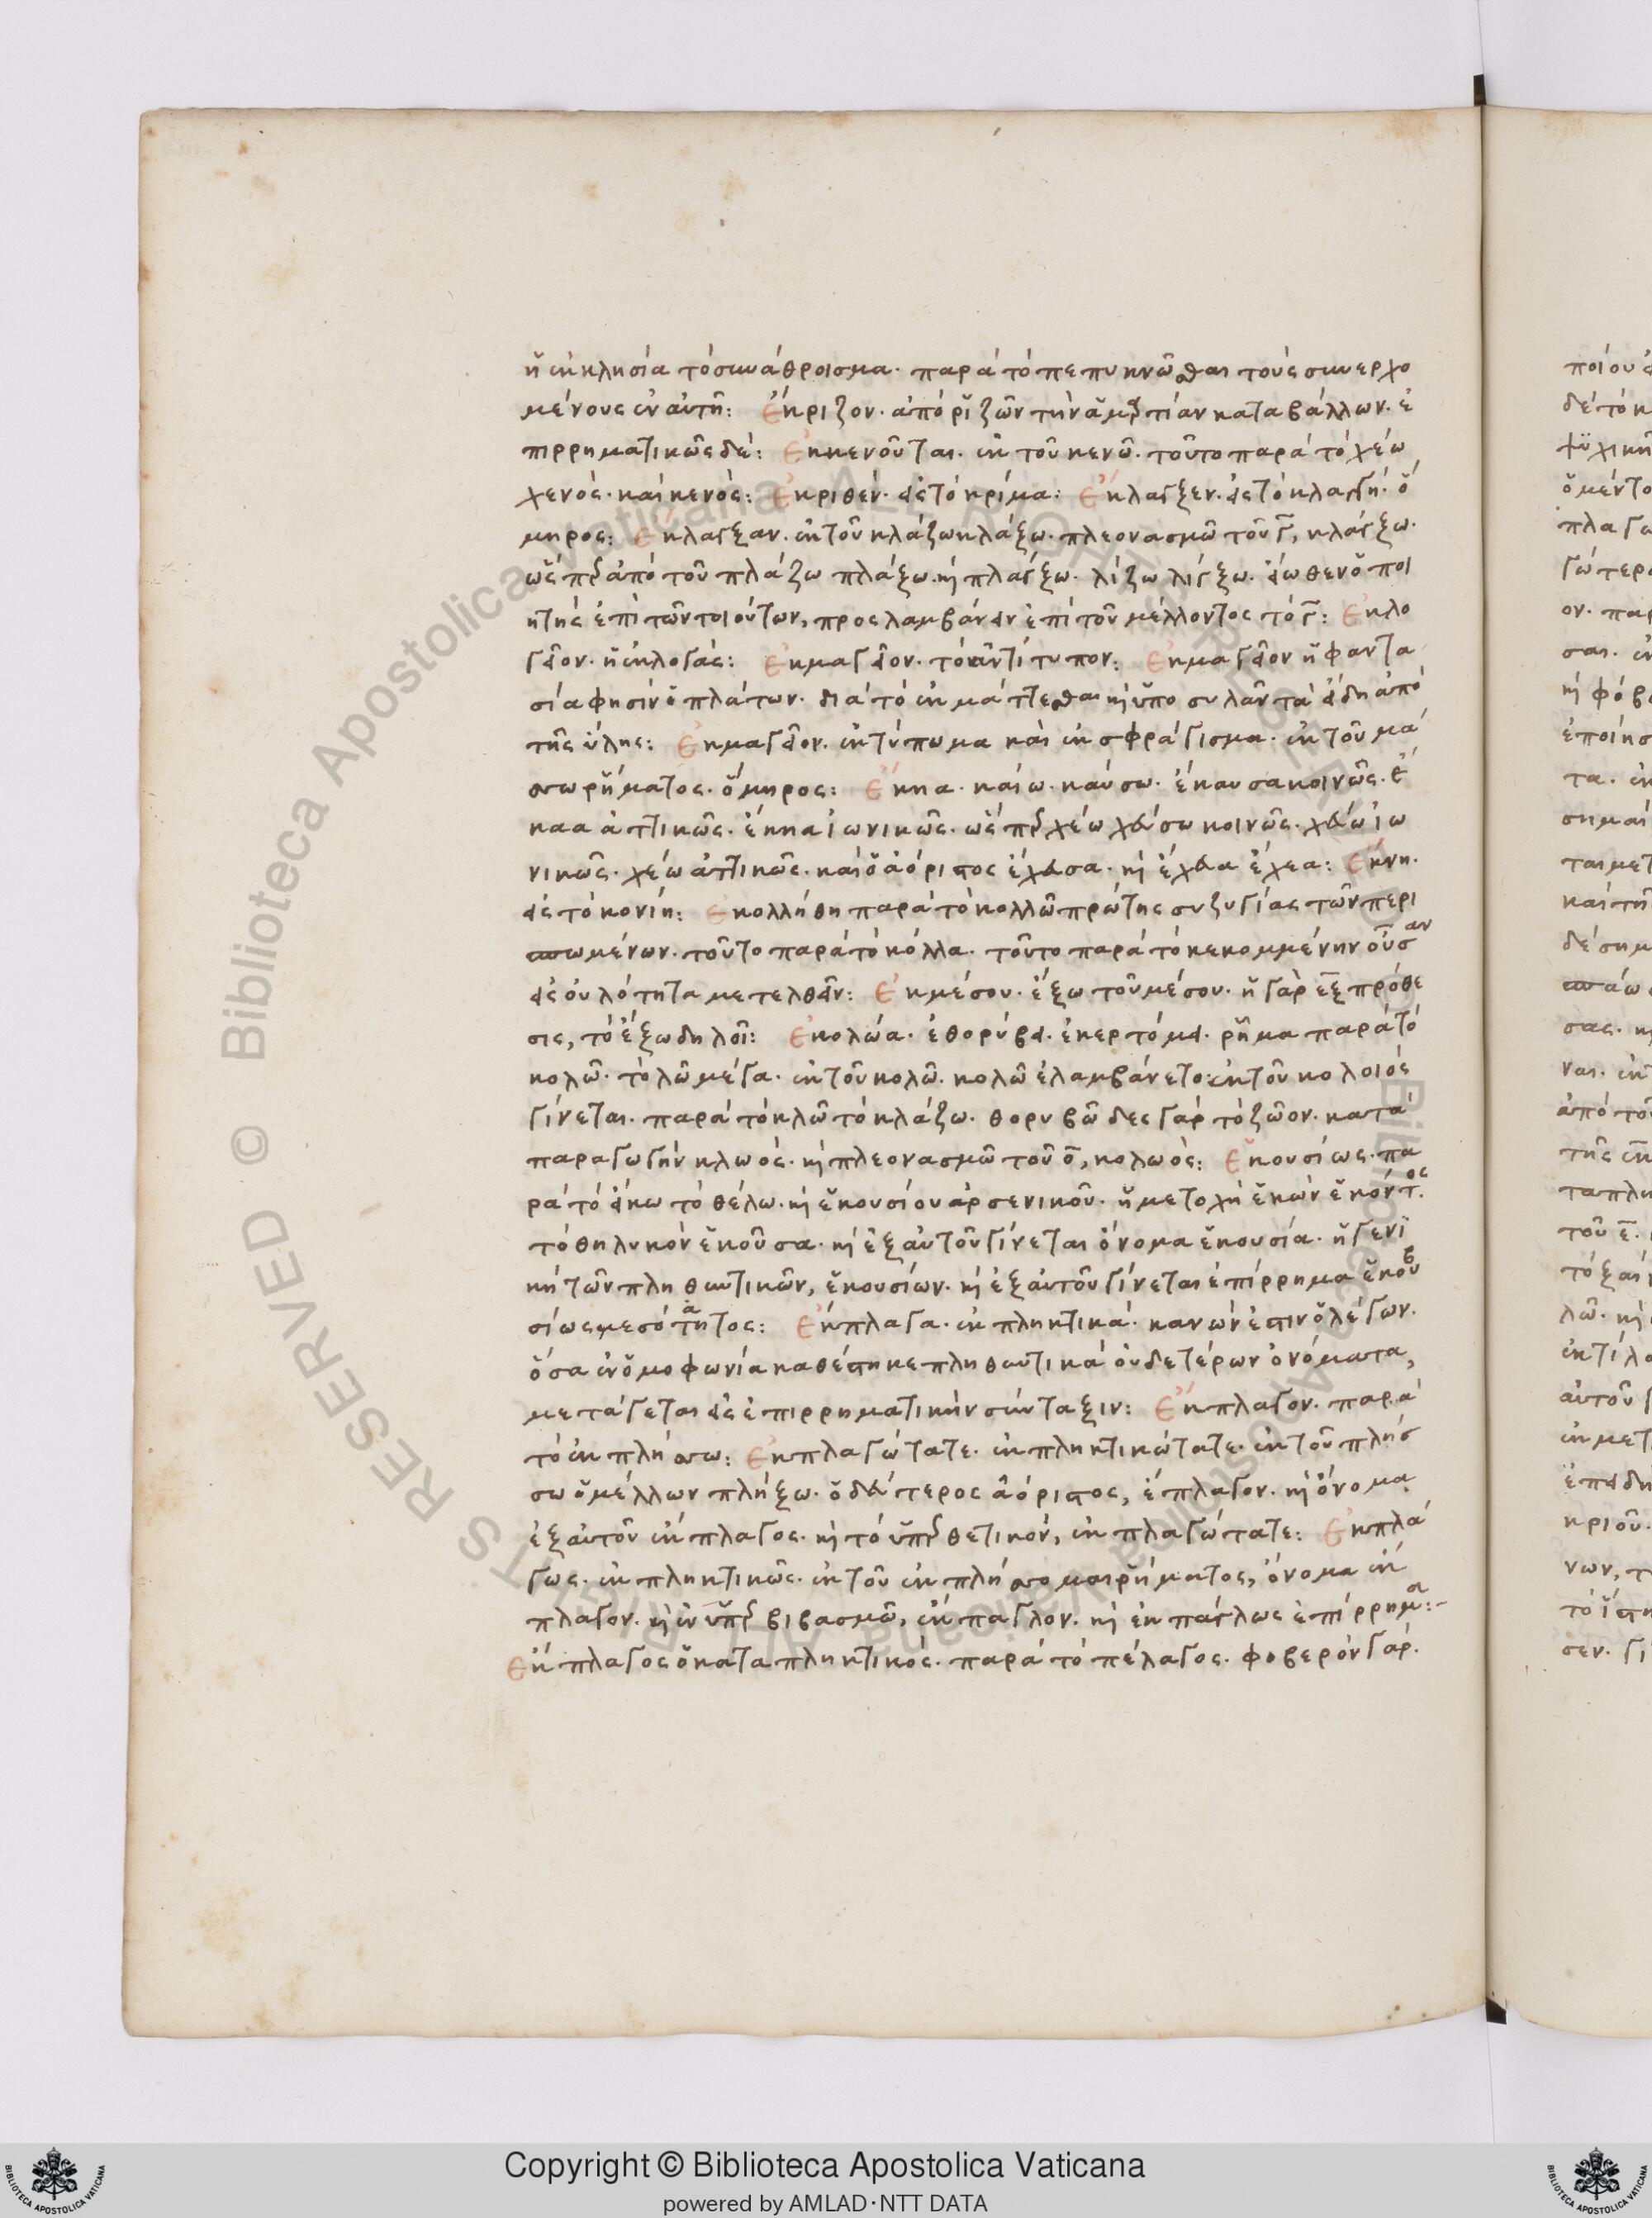 ἢ ἐκκλησία τὸ συνάθροισμα· παρὰ τὸ πεπυκνῶσθαι τοὺς συνερχο
μένους ἐν αὐτῆ: Ἐκριζον· ἀπὸ ῥιζῶν τὴν ἁμρτίαν καταβάλλων· ἐ
πιρρηματικῶς δὲ: Ἐκκενοῦται· ἐκ τοῦ κενῶ· τοῦτο παρὰ τὸ χέω
χενός· καὶ κενός: Ἐκριθεν· εἰς τὸ κρίμα: Ἔκλαγξεν· εἰς τὸ κλαγγή· ὅ
μηρος: Ἔκλαγξαν· ἐκ τοῦ κλάζω κλάξω· πλεονασμῶ τοῦ γ, κλάγξω·
ὥσπερ ἀπὸ τοῦ πλάζω πλάξω· κὶ πλάγξω· λίζω λίγξω· εἴωθεν ὁ ποι
ητὴς ἐπὶ τῶν τοιούτων, προσλαμβάνειν ἐπὶ τοῦ μέλλοντος τὸ γ: Ἐκλο
γεῖον· ἢ ἐκλογάς: Ἐκμαγεῖον· τὸ ἀντίτυπον: Ἐκμαγεῖον ἡ φαντα
σία φησὶν ὁ πλάτων· διὰ τὸ ἐκμάττεσθαι κὶ ὑποσυλᾶν τὰ εἴδη ἀπὸ
τῆς ὕλης: Ἐκμαγεῖον· ἐκτύπωμα καὶ ἐκσφράγισμα· ἐκ τοῦ μά
σσω ῥήματος· ὅμηρος: Ἔκηα· καίω· καύσω· ἔκαυσα κοινῶς· ἔ
καα ἀττικῶς· ἔκηα ἰωνικῶς· ὥσπερ χέω χεύσω κοινῶς· χεύω ἰω
νικῶς· χέω ἀττικῶς· καὶ ὁ ἀόριστος ἔχευσα· κὶ ἔχευα ἔχεα: Ἔκνη·
εἰς τὸ κονίη: Ἐκολλήθη παρὰ τὸ κολλῶ πρώτης συζυγίας τῶν περι
σπωμένων· τοῦτο παρὰ τὸ κόλλα· τοῦτο παρὰ τὸ κεκομμένην οὖσαν
εἰς οὐλότητα μετελθεῖν: Ἐκμέσου· ἔξω τοῦ μέσου· ἡ γὰρ ἐξ πρόθε
σις, τὸ ἔξω δηλοῖ: Ἐκολώα· ἐθορύβει· ἐκερτόμει· ῥῆμα παρὰ τὸ
κολῶ· τὸ λῶ μέγα· ἐκ τοῦ κολῶ· κολῶ ἐλαμβάνετο: ἐκ τοῦ κολοιός
γίνεται· παρὰ τὸ κλῶ τὸ κλάζω· θορυβῶδες γὰρ τὸ ζῶον· κατὰ
παραγωγὴν κλωός· κὶ πλεονασμῶ τοῦ ο, κολωός: Ἑκουσίως· πα
ρὰ τὸ εἴκω τὸ θέλω· κὶ ἑκουσίου ἀρσενικοῦ· ἡ μετοχὴ ἑκὼν ἑκόντος·
τὸ θηλυκὸν ἑκοῦσα· κὶ ἐξ αὐτοῦ γίνεται ὄνομα ἑκουσία· ἡ γενι
κὴ τῶν πληθυντικῶν, ἑκουσίων· κὶ ἐξ αὐτοῦ γίνεται ἐπίρρημα ἑκου
σίως μεσότητος: Ἔκπλαγα· ἐκπληκτικά· κανών ἐστιν ὁ λέγων·
ὅσα ἐν ὁμοφωνία καθέστηκε πληθυντικὰ οὐδετέρων ὀνόματα,
μετάγεται εἰς ἐπιρρηματικὴν σύνταξιν: Ἔκπλαγον· παρὰ
τὸ ἐκπλήσσω: Ἐκπλαγώτατε· ἐκπληκτικώτατε· ἐκ τοῦ πλήσ
σω ὁ μέλλων πλήξω· ὁ δεύτερος ἀόριστος, ἔπλαγον· κὶ ὄνομα
ἐξ αὐτοῦ ἔκπλαγος· κὶ τὸ ὑπερθετικόν, ἐκπλαγώτατε: Ἐκπλά
γως· ἐκπληκτικῶς· ἐκ τοῦ ἐκπλήσσομαι ῥήματος, ὄνομα ἔκ
πλαγον· κὶ ἐν ὑπερβιβασμῶ, ἔκπαγλον· κὶ ἐκπάγλως ἐπίρρημα:-
Ἔκπλαγος ὁ καταπληκτικός· παρὰ τὸ πέλαγος· φοβερὸν γάρ·
Copyright © Biblioteca Apostolica Vaticana
powered by AMLAD·NTT DATA